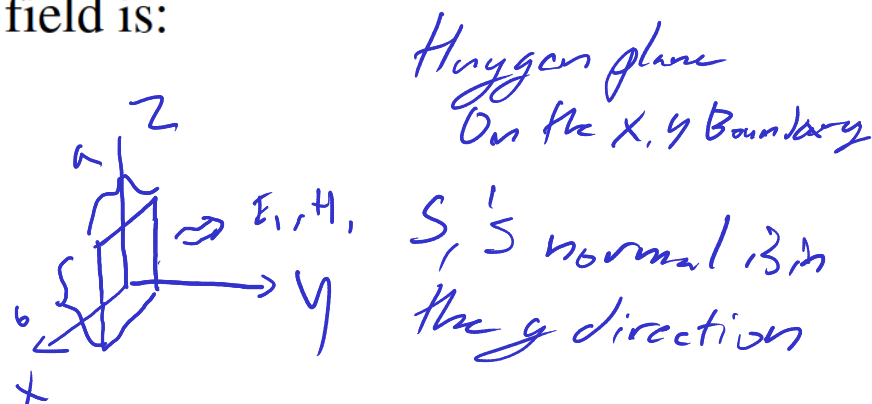 field is:
Huygen plane
On the x, y Boundary
Z
a
E₁, H₁
S₁'s normal is in
the y direction
b
y
x